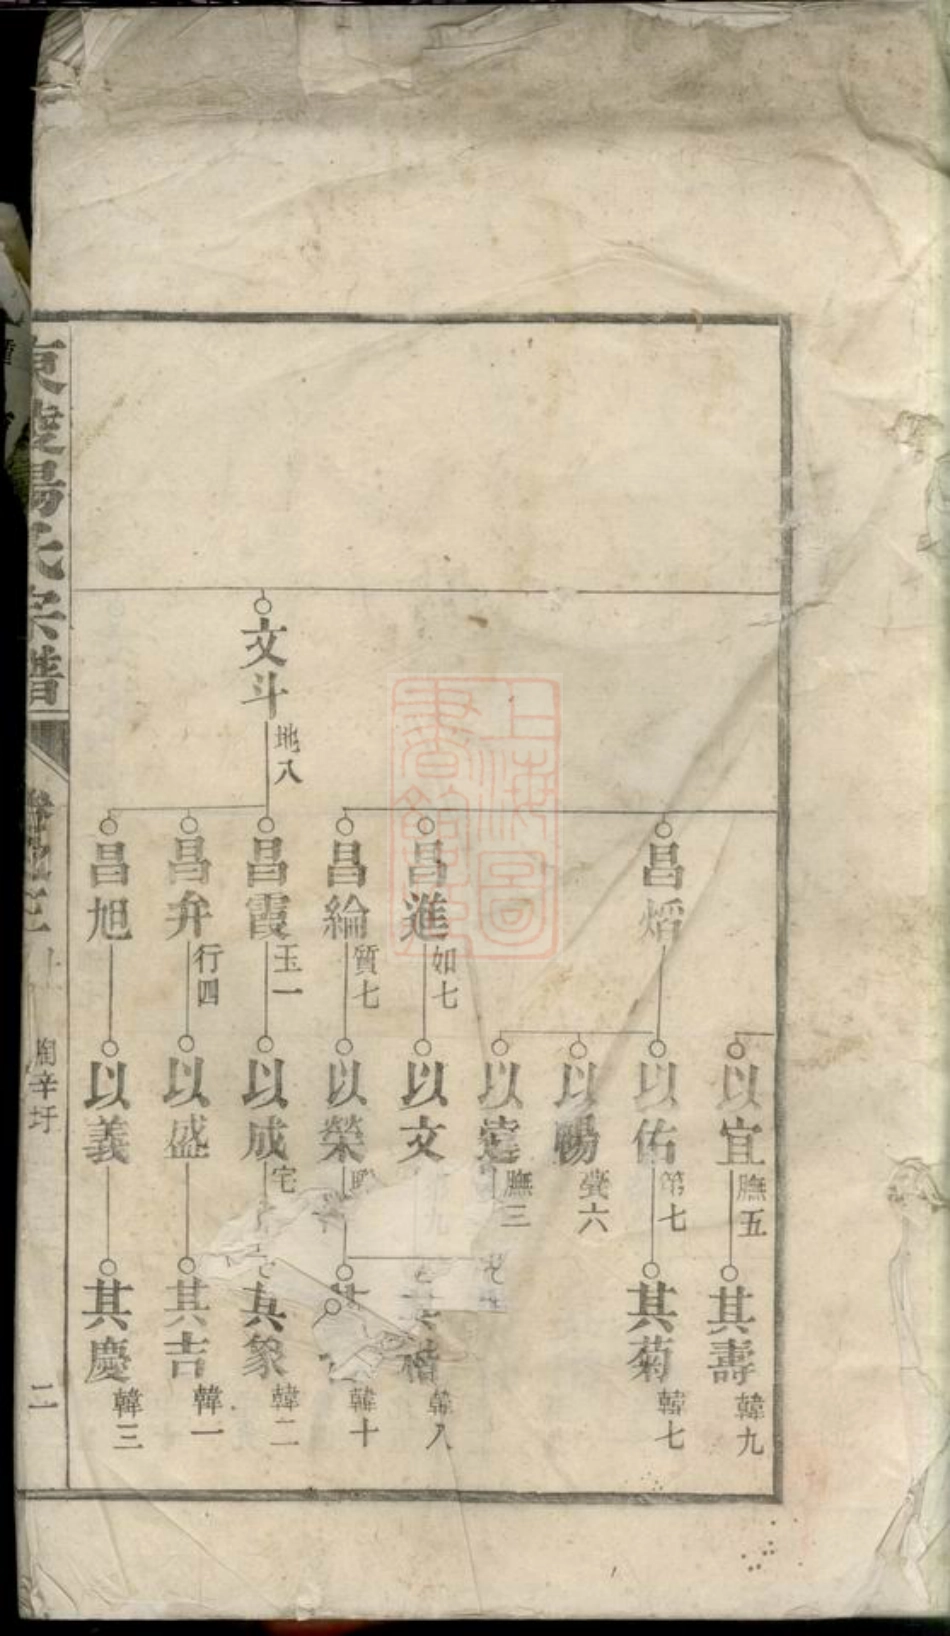 文斗 地八
昌熖
昌進 如七
昌綸 質七
昌霞 玉一
昌弁 行四
昌旭
以宜 膴五
以佑 第七
以暢 六
以 膴三
以文 九
以榮
以成 宅
以盛
以義
其壽 韓九
其菊 韓七
其楷 韓八
韓十
其象 韓二
其吉 韓一
其慶 韓三
楊氏宗譜
陶辛圩
二
上海圖書館藏